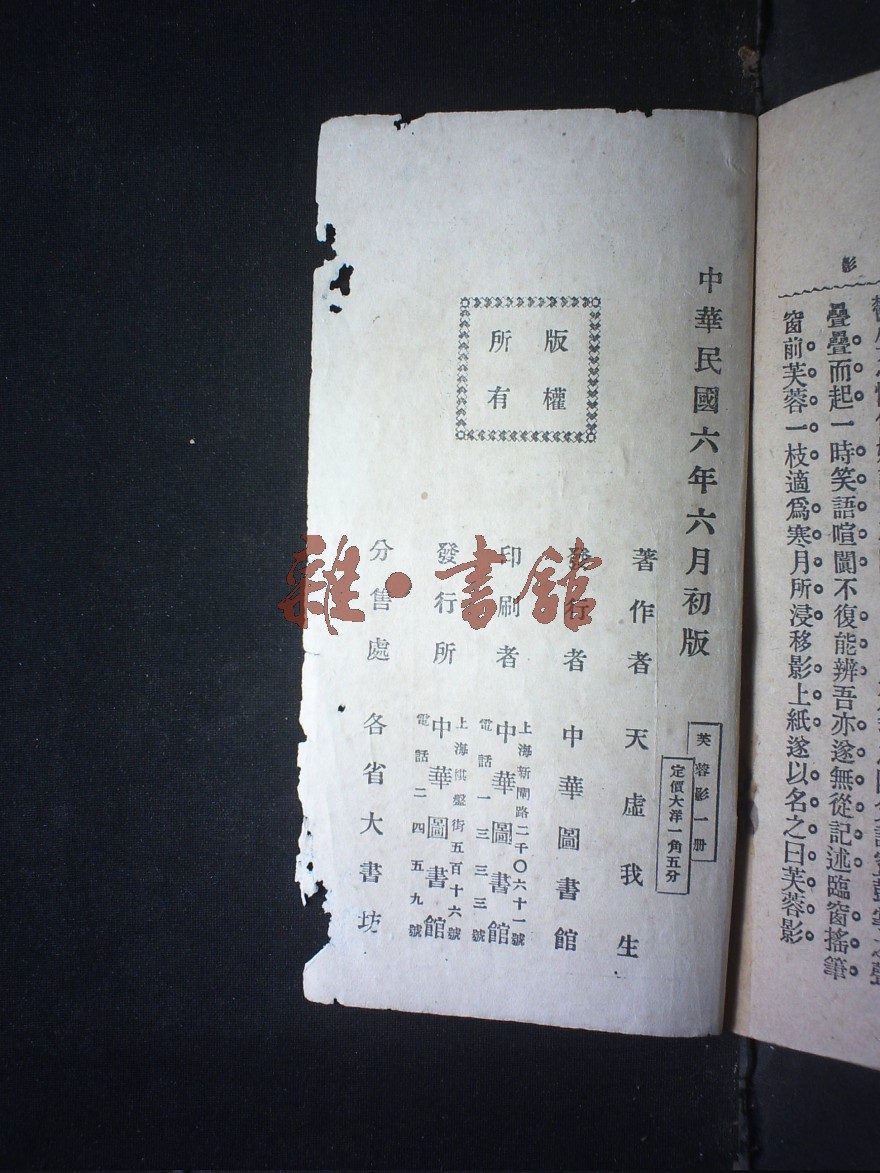 影
疊疊而起一時笑語喧闐不復能辨吾亦遂無從記述臨窗搖筆
窗前芙蓉一枝適為寒月所浸移影上紙遂以名之曰芙蓉影
中華民國六年六月初版
芙蓉影一冊
定價大洋一角五分
版權
所有
著作者 天虛我生
發行者 中華圖書館
印刷者 中華圖書館
上海新閘路二千〇六十一號
電話一三三三號
發行所 中華圖書館
上海棋盤街五百十六號
電話二四五九號
分售處 各省大書坊
雜·書館